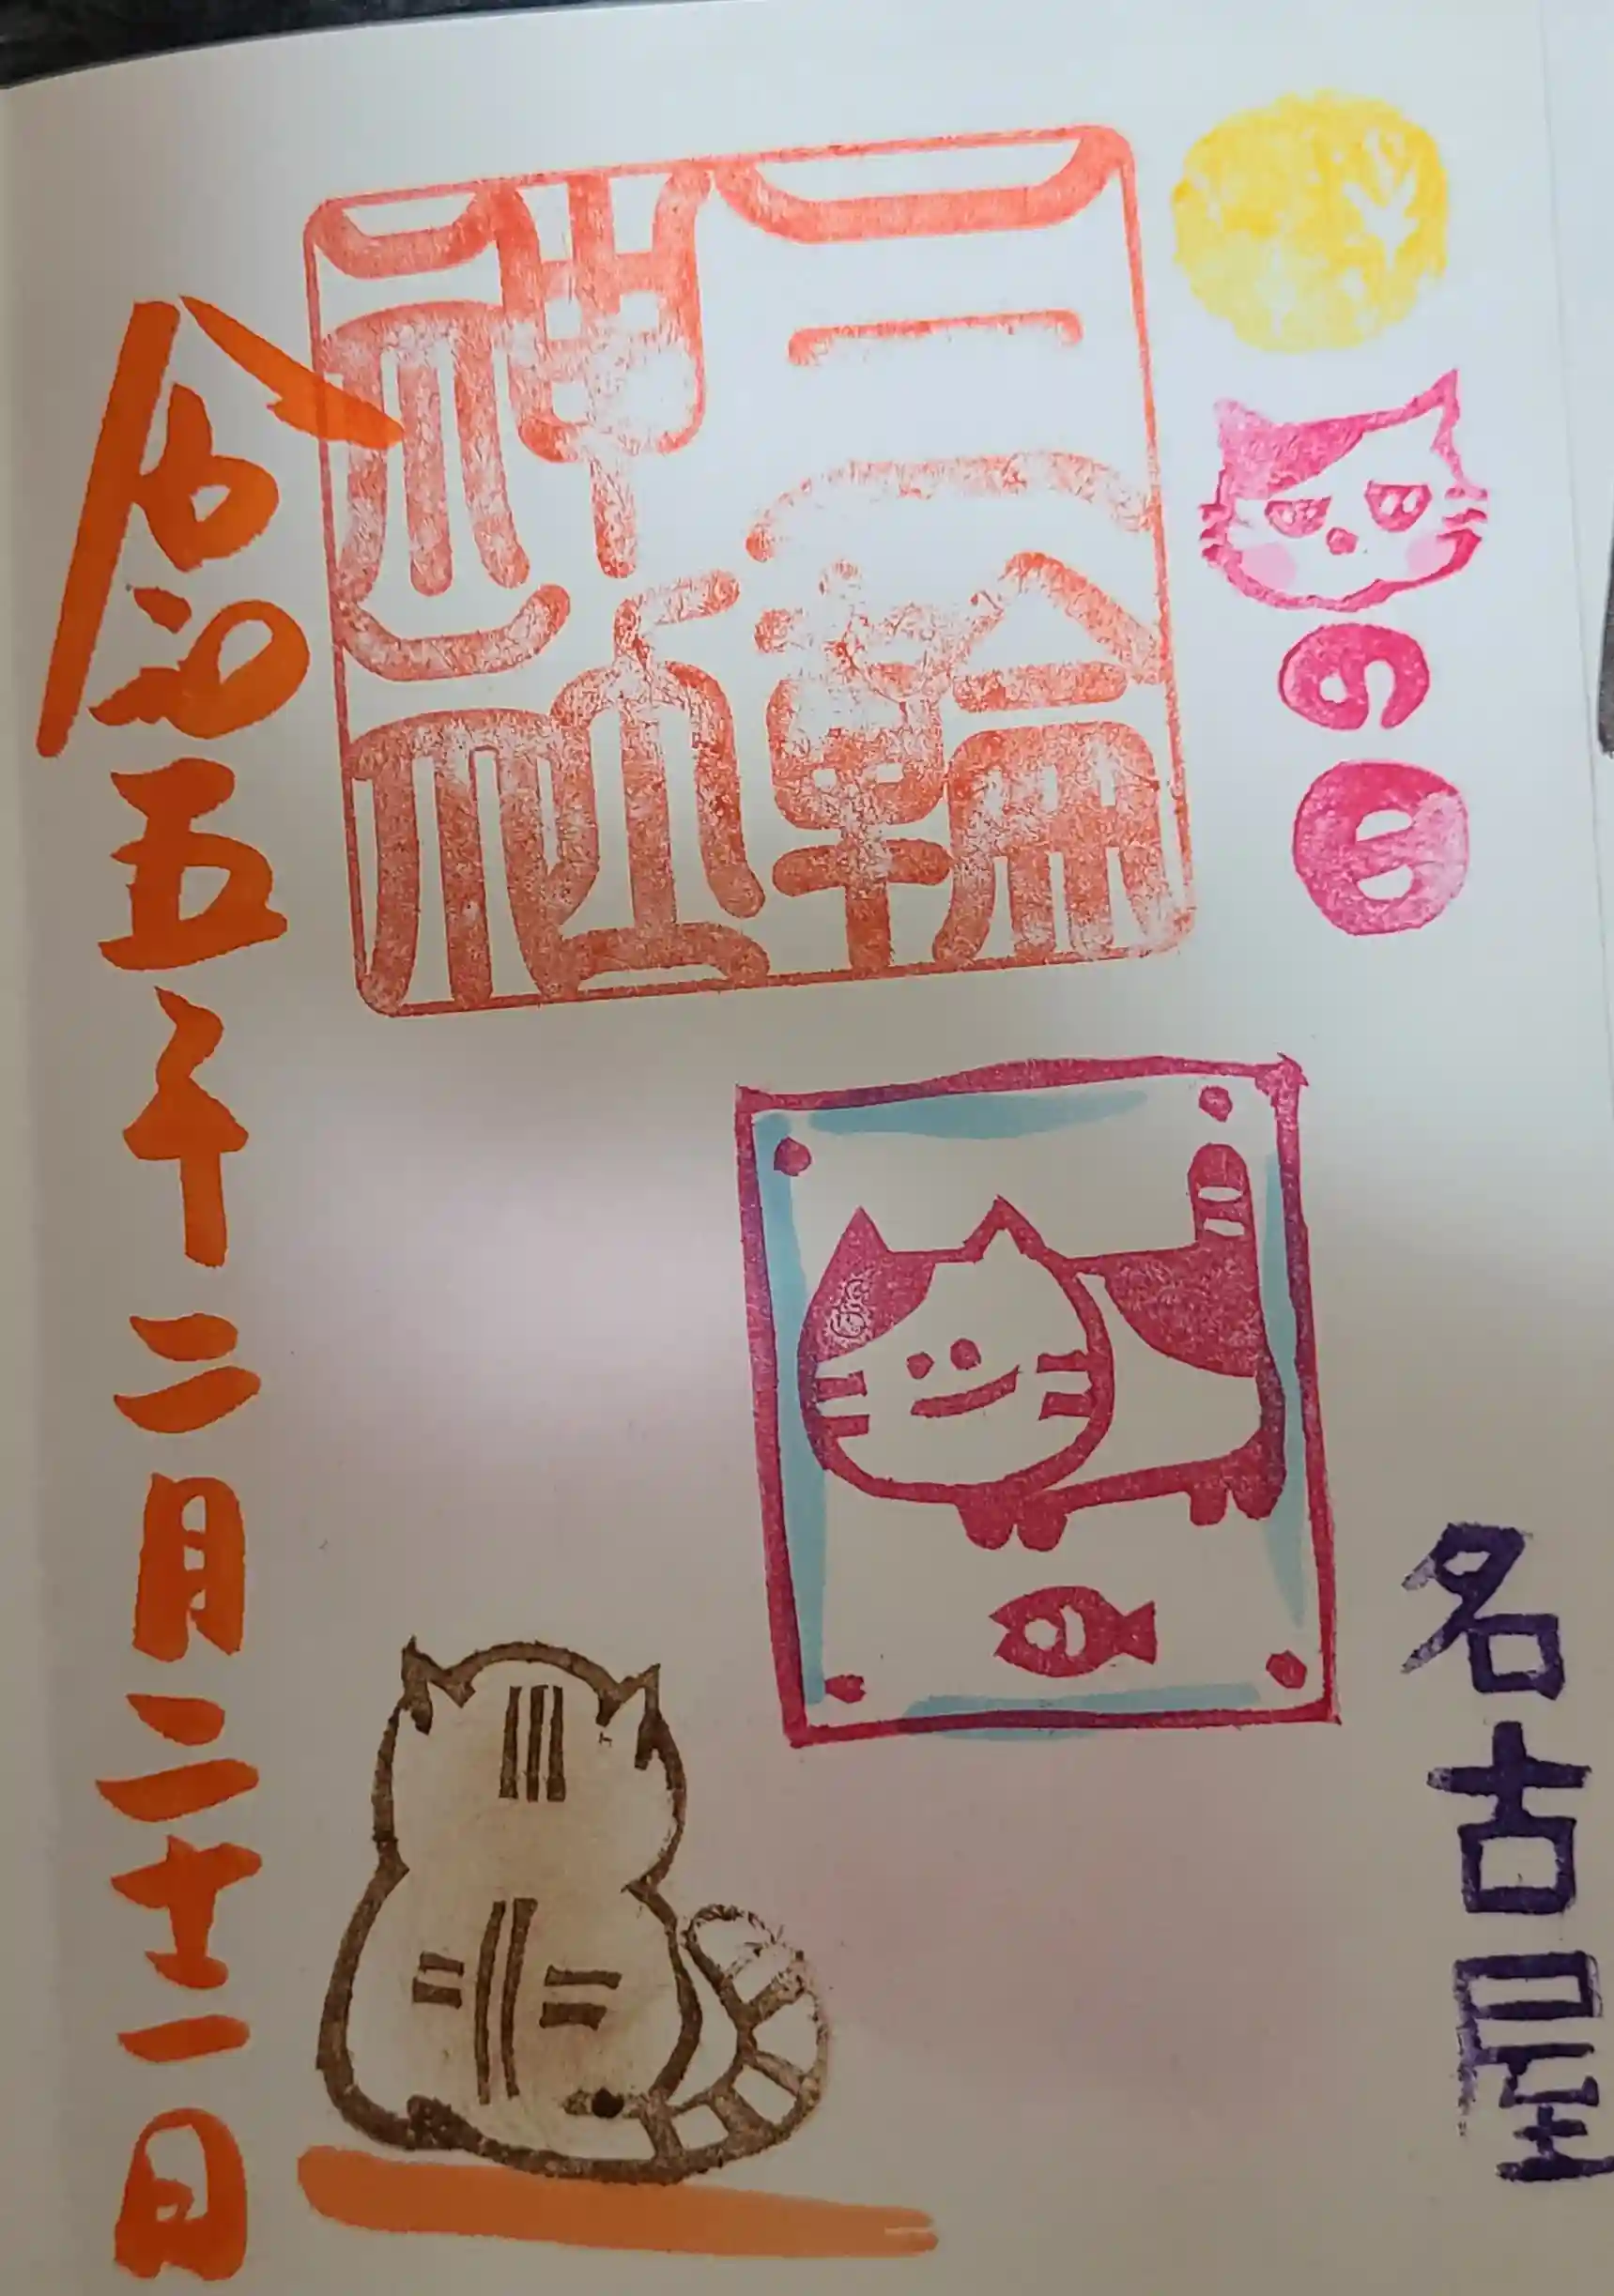 のの日
三輪
神社
名古屋
令和五年二月二十二日